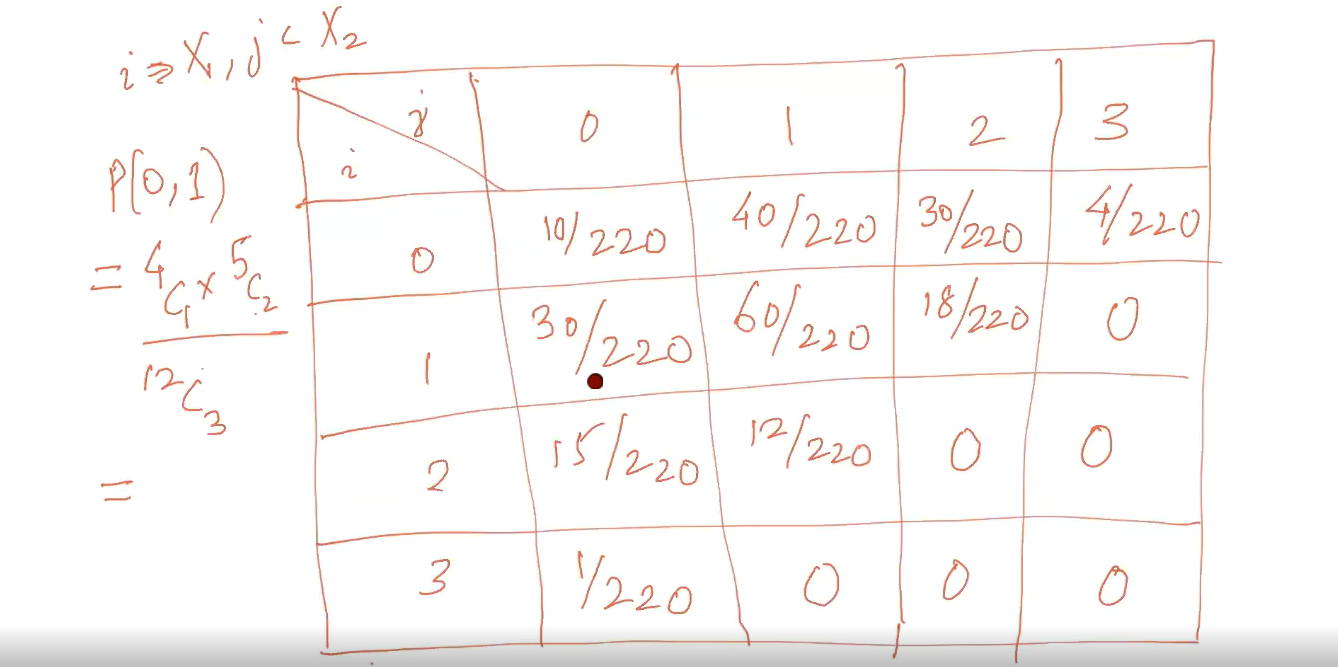 i => X₁, j < X₂
P(0,1)
= ⁴C₁ × ⁵C₂
¹²C₃
=
j 0 1 2 3
i
0 10/220 40/220 30/220 4/220
1 30/220 60/220 18/220 0
2 15/220 12/220 0 0
3 1/220 0 0 0